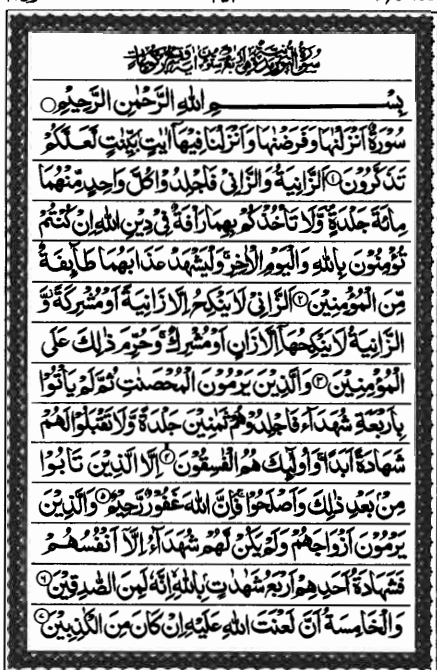 سُوْرَةُ النُّوْرِ مَدَنِيَّةٌ
بِسْمِ اللهِ الرَّحْمٰنِ الرَّحِيْمِ
سُوْرَةٌ اَنْزَلْنٰهَا وَفَرَضْنٰهَا وَاَنْزَلْنَا فِيْهَاۤ اٰيٰتٍۭ بَيِّنٰتٍ لَّعَلَّكُمْ
تَذَكَّرُوْنَ ۱ اَلزَّانِيَةُ وَالزَّانِيْ فَاجْلِدُوْا كُلَّ وَاحِدٍ مِّنْهُمَا
مِائَةَ جَلْدَةٍ وَّلَا تَاْخُذْكُمْ بِهِمَا رَاْفَةٌ فِيْ دِيْنِ اللهِ اِنْ كُنْتُمْ
تُؤْمِنُوْنَ بِاللهِ وَالْيَوْمِ الْاٰخِرِ وَلْيَشْهَدْ عَذَابَهُمَا طَآئِفَةٌ
مِّنَ الْمُؤْمِنِيْنَ ۲ اَلزَّانِيْ لَا يَنْكِحُ اِلَّا زَانِيَةً اَوْ مُشْرِكَةً وَّ
الزَّانِيَةُ لَا يَنْكِحُهَاۤ اِلَّا زَانٍ اَوْ مُشْرِكٌ وَحُرِّمَ ذٰلِكَ عَلَى
الْمُؤْمِنِيْنَ ۳ وَالَّذِيْنَ يَرْمُوْنَ الْمُحْصَنٰتِ ثُمَّ لَمْ يَاْتُوْا
بِاَرْبَعَةِ شُهَدَآءَ فَاجْلِدُوْهُمْ ثَمٰنِيْنَ جَلْدَةً وَّلَا تَقْبَلُوْا لَهُمْ
شَهَادَةً اَبَدًا وَاُولٰٓئِكَ هُمُ الْفٰسِقُوْنَ ۴ اِلَّا الَّذِيْنَ تَابُوْا
مِنْۢ بَعْدِ ذٰلِكَ وَاَصْلَحُوْا فَاِنَّ اللهَ غَفُوْرٌ رَّحِيْمٌ ۵ وَالَّذِيْنَ
يَرْمُوْنَ اَزْوَاجَهُمْ وَلَمْ يَكُنْ لَّهُمْ شُهَدَآءُ اِلَّاۤ اَنْفُسُهُمْ
فَشَهَادَةُ اَحَدِهِمْ اَرْبَعُ شَهٰدٰتٍۭ بِاللهِ اِنَّهٗ لَمِنَ الصّٰدِقِيْنَ ۶
وَالْخَامِسَةُ اَنَّ لَعْنَتَ اللهِ عَلَيْهِ اِنْ كَانَ مِنَ الْكٰذِبِيْنَ ۷